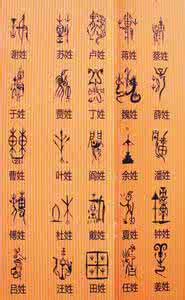 谢姓 苏姓 卢姓 蒋姓 蔡姓
于姓 贾姓 丁姓 魏姓 薛姓
曹姓 叶姓 阎姓 余姓 潘姓
傅姓 杜姓 戴姓 夏姓 钟姓
吕姓 汪姓 田姓 任姓 姜姓